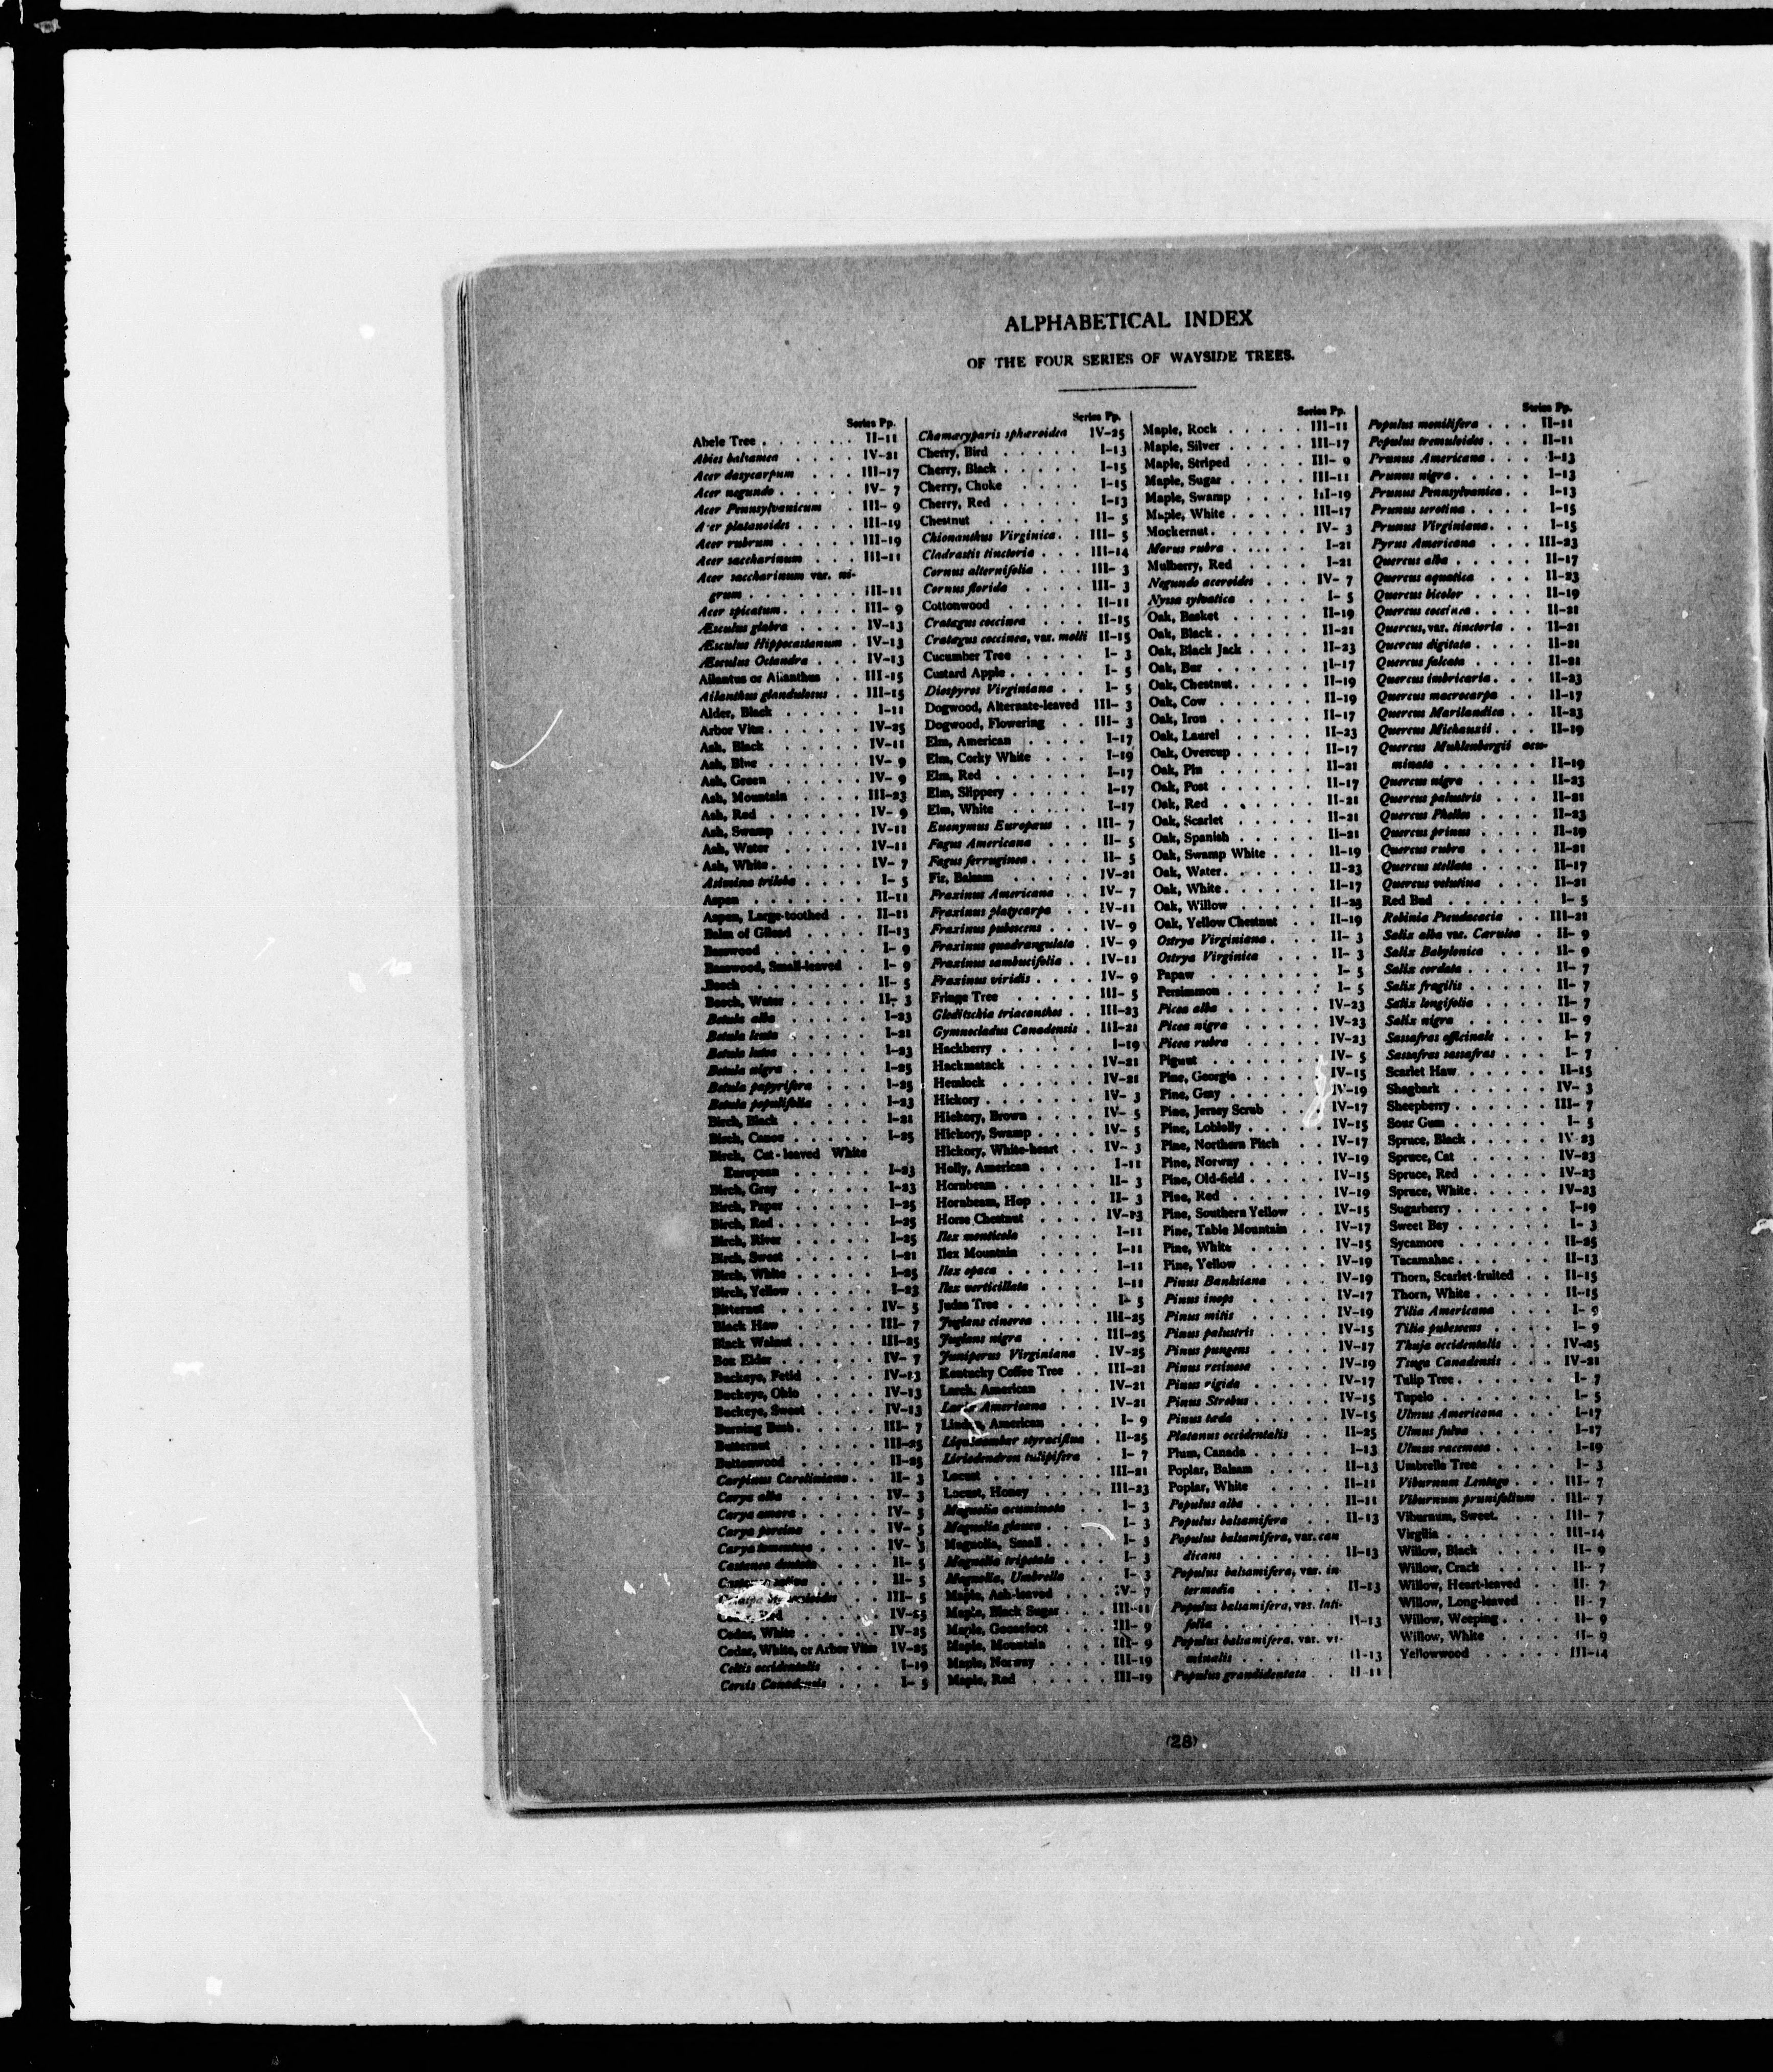 ALPHABETICAL INDEX
OF THE FOUR SERIES OF WAYSIDE TREES.
Series Pp.
Abele Tree . . . . . . II-11
Abies balsamea . . . . IV-21
Acer dasycarpum . . . III-17
Acer negundo . . . . . IV- 7
Acer Pennsylvanicum . III- 9
Acer platanoides . . . . III-19
Acer rubrum . . . . . III-19
Acer saccharinum . . . III-11
Acer saccharinum var. ni-
grum . . . . . . . III-11
Acer spicatum . . . . . III- 9
Æsculus glabra . . . . IV-13
Æsculus Hippocastanum . IV-13
Æsculus Octandra . . . IV-13
Ailantus or Ailanthus . . III-15
Ailanthus glandulosus . . III-15
Alder, Black . . . . . I-11
Arbor Vitæ . . . . . . IV-25
Ash, Black . . . . . IV-11
Ash, Blue . . . . . . IV- 9
Ash, Green . . . . . IV- 9
Ash, Mountain . . . . III-23
Ash, Red . . . . . . IV- 9
Ash, Swamp . . . . . IV-11
Ash, Water . . . . . IV-11
Ash, White . . . . . . IV- 7
Asimina triloba . . . . I- 5
Aspen . . . . . . . II-11
Aspen, Large-toothed . . II-11
Balm of Gilead . . . . II-13
Basswood . . . . . . I- 9
Basswood, Small-leaved . I- 9
Beech . . . . . . . II- 5
Beech, Water . . . . . II- 3
Betula alba . . . . . I-23
Betula lenta . . . . . I-21
Betula lutea . . . . . I-23
Betula nigra . . . . . I-25
Betula papyrifera . . . I-25
Betula populifolia . . . I-23
Birch, Black . . . . . I-21
Birch, Canoe . . . . . I-25
Birch, Cut-leaved White
European . . . . . I-23
Birch, Gray . . . . . I-23
Birch, Paper . . . . . I-25
Birch, Red . . . . . . I-25
Birch, River . . . . . I-25
Birch, Sweet . . . . . I-21
Birch, White . . . . . I-25
Birch, Yellow . . . . . I-23
Bitternut . . . . . . IV- 5
Black Haw . . . . . III- 7
Black Walnut . . . . . III-25
Box Elder . . . . . . IV- 7
Buckeye, Fetid . . . . IV-13
Buckeye, Ohio . . . . IV-13
Buckeye, Sweet . . . . IV-13
Burning Bush . . . . . III- 7
Butternut . . . . . . III-25
Buttonwood . . . . . II-25
Carpinus Caroliniana . . II- 3
Carya alba . . . . . IV- 3
Carya amara . . . . . IV- 5
Carya porcina . . . . IV- 5
Carya tomentosa . . . . IV- 3
Castanea dentata . . . II- 5
II- 5
III- 5
Cedar, White . . . . . IV-25
Cedar, White, or Arbor Vitæ IV-25
Celtis occidentalis . . . I-19
Cercis Canadensis . . . I- 5
Series Pp.
Chamæcyparis sphæroidea IV-25
Cherry, Bird . . . . . I-13
Cherry, Black . . . . . I-15
Cherry, Choke . . . . I-15
Cherry, Red . . . . . I-13
Chestnut . . . . . . II- 5
Chionanthus Virginica . . III- 5
Cladrastis tinctoria . . . III-14
Cornus alternifolia . . . III- 3
Cornus florida . . . . III- 3
Cottonwood . . . . . II-11
Cratægus coccinea . . . II-15
Cratægus coccinea, var. molli II-15
Cucumber Tree . . . . I- 3
Custard Apple . . . . . I- 5
Diospyros Virginiana . . I- 5
Dogwood, Alternate-leaved III- 3
Dogwood, Flowering . . III- 3
Elm, American . . . . I-17
Elm, Corky White . . . I-19
Elm, Red . . . . . . I-17
Elm, Slippery . . . . . I-17
Elm, White . . . . . I-17
Euonymus Europæus . . III- 7
Fagus Americana . . . II- 5
Fagus ferruginea . . . . II- 5
Fir, Balsam . . . . . IV-21
Fraxinus Americana . . IV- 7
Fraxinus platycarpa . . IV-11
Fraxinus pubescens . . . IV- 9
Fraxinus quadrangulata . IV- 9
Fraxinus sambucifolia . . IV-11
Fraxinus viridis . . . . IV- 9
Fringe Tree . . . . . III- 5
Gleditschia triacanthos . . III-23
Gymnocladus Canadensis . III-21
Hackberry . . . . . . I-19
Hackmatack . . . . . IV-21
Hemlock . . . . . . IV-21
Hickory . . . . . . . IV- 3
Hickory, Brown . . . . IV- 5
Hickory, Swamp . . . . IV- 5
Hickory, White-heart . . IV- 3
Holly, American . . . . I-11
Hornbeam . . . . . . II- 3
Hornbeam, Hop . . . . II- 3
Horse Chestnut . . . . IV-13
Ilex monticola . . . . I-11
Ilex Mountain . . . . I-11
Ilex opaca . . . . . . I-11
Ilex verticillata . . . . I-11
Judas Tree . . . . . . I- 5
Juglans cinerea . . . . III-25
Juglans nigra . . . . III-25
Juniperus Virginiana . IV-25
Kentucky Coffee Tree . . III-21
Larch, American . . . IV-21
Larix Americana . . . IV-21
Linden, American . . . I- 9
Liquidambar styraciflua . II-25
Liriodendron tulipifera . I- 7
Locust . . . . . . . III-21
Locust, Honey . . . . III-23
Magnolia acuminata . . I- 3
Magnolia glauca . . . . I- 3
Magnolia, Small . . . . I- 3
Magnolia tripetala . . . I- 3
Magnolia, Umbrella . . I- 3
Maple, Ash-leaved . . . IV- 7
Maple, Black Sugar . . . III-11
Maple, Goosefoot . . . III- 9
Maple, Mountain . . . III- 9
Maple, Norway . . . . III-19
Maple, Red . . . . . III-19
Series Pp.
Maple, Rock . . . . . III-11
Maple, Silver . . . . . III-17
Maple, Striped . . . . III- 9
Maple, Sugar . . . . . III-11
Maple, Swamp . . . . III-19
Maple, White . . . . . III-17
Mockernut . . . . . . IV- 3
Morus rubra . . . . . I-21
Mulberry, Red . . . . I-21
Negundo aceroides . . . IV- 7
Nyssa sylvatica . . . . I- 5
Oak, Basket . . . . . II-19
Oak, Black . . . . . . II-21
Oak, Black Jack . . . . II-23
Oak, Bur . . . . . . II-17
Oak, Chestnut . . . . . II-19
Oak, Cow . . . . . . II-19
Oak, Iron . . . . . . II-17
Oak, Laurel . . . . . II-23
Oak, Overcup . . . . . II-17
Oak, Pin . . . . . . II-21
Oak, Post . . . . . . II-17
Oak, Red . . . . . . II-21
Oak, Scarlet . . . . . II-21
Oak, Spanish . . . . . II-21
Oak, Swamp White . . . II-19
Oak, Water . . . . . . II-23
Oak, White . . . . . . II-17
Oak, Willow . . . . . II-23
Oak, Yellow Chestnut . . II-19
Ostrya Virginiana . . . II- 3
Ostrya Virginica . . . II- 3
Papaw . . . . . . . I- 5
Persimmon . . . . . . I- 5
Picea alba . . . . . . IV-23
Picea nigra . . . . . IV-23
Picea rubra . . . . . IV-23
Pignut . . . . . . . IV- 5
Pine, Georgia . . . . . IV-15
Pine, Gray . . . . . IV-19
Pine, Jersey Scrub . . IV-17
Pine, Loblolly . . . . IV-15
Pine, Northern Pitch . . IV-17
Pine, Norway . . . . . IV-19
Pine, Old-field . . . . . IV-15
Pine, Red . . . . . . IV-19
Pine, Southern Yellow . . IV-15
Pine, Table Mountain . . IV-17
Pine, White . . . . . IV-15
Pine, Yellow . . . . . IV-19
Pinus Banksiana . . . IV-19
Pinus inops . . . . . IV-17
Pinus mitis . . . . . IV-19
Pinus palustris . . . . IV-15
Pinus pungens . . . . IV-17
Pinus resinosa . . . . IV-19
Pinus rigida . . . . . IV-17
Pinus Strobus . . . . . IV-15
Pinus tæda . . . . . IV-15
Platanus occidentalis . . II-25
Plum, Canada . . . . . I-13
Poplar, Balsam . . . . II-13
Poplar, White . . . . II-11
Populus alba . . . . . II-11
Populus balsamifera . . II-13
Populus balsamifera, var. can
dicans . . . . . . . II-13
Populus balsamifera, var. in
termedia . . . . . II-13
Populus balsamifera, var. lati-
folia . . . . . . . II-13
Populus balsamifera, var. vi-
minalis . . . . . . II-13
Populus grandidentata . . II-11
Series Pp.
Populus monilifera . . . II-11
Populus tremuloides . . . II-11
Prunus Americana . . . I-13
Prunus nigra . . . . . I-13
Prunus Pennsylvanica . . I-13
Prunus serotina . . . . I-15
Prunus Virginiana . . . I-15
Pyrus Americana . . . III-23
Quercus alba . . . . . II-17
Quercus aquatica . . . II-23
Quercus bicolor . . . . II-19
Quercus coccinea . . . . II-21
Quercus, var. tinctoria . . II-21
Quercus digitata . . . . II-21
Quercus falcata . . . . II-21
Quercus imbricaria . . . II-23
Quercus macrocarpa . . II-17
Quercus Marilandica . . II-23
Quercus Michauxii . . . II-19
Quercus Muhlenbergii acu-
minata . . . . . . . II-19
Quercus nigra . . . . II-23
Quercus palustris . . . II-21
Quercus Phellos . . . . II-23
Quercus prinus . . . . II-19
Quercus rubra . . . . II-21
Quercus stellata . . . . II-17
Quercus velutina . . . II-21
Red Bud . . . . . . I- 5
Robinia Pseudacacia . . III-21
Salix alba var. Cærulea . II- 9
Salix Babylonica . . . II- 9
Salix cordata . . . . . II- 7
Salix fragilis . . . . . II- 7
Salix longifolia . . . . II- 7
Salix nigra . . . . . II- 9
Sassafras officinale . . . I- 7
Sassafras sassafras . . . I- 7
Scarlet Haw . . . . . II-15
Shagbark . . . . . . IV- 3
Sheepberry . . . . . . III- 7
Sour Gum . . . . . . I- 5
Spruce, Black . . . . . IV-23
Spruce, Cat . . . . . IV-23
Spruce, Red . . . . . IV-23
Spruce, White . . . . . IV-23
Sugarberry . . . . . . I-19
Sweet Bay . . . . . . I- 3
Sycamore . . . . . . II-25
Tacamahac . . . . . . II-13
Thorn, Scarlet-fruited . . II-15
Thorn, White . . . . . II-15
Tilia Americana . . . I- 9
Tilia pubescens . . . . I- 9
Thuja occidentalis . . . IV-25
Tsuga Canadensis . . . IV-21
Tulip Tree . . . . . . I- 7
Tupelo . . . . . . . I- 5
Ulmus Americana . . . I-17
Ulmus fulva . . . . . I-17
Ulmus racemosa . . . . I-19
Umbrella Tree . . . . I- 3
Viburnum Lentago . . . III- 7
Viburnum prunifolium . III- 7
Viburnum, Sweet . . . . III- 7
Virgilia . . . . . . . III-14
Willow, Black . . . . II- 9
Willow, Crack . . . . II- 7
Willow, Heart-leaved . . II- 7
Willow, Long-leaved . . II- 7
Willow, Weeping . . . . II- 9
Willow, White . . . . II- 9
Yellowwood . . . . . III-14
(28)